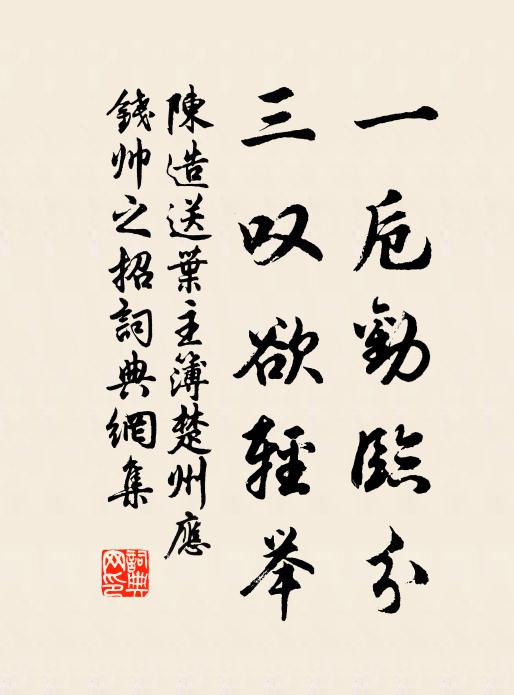 一卮勸臨分
三叹欲輕举
陳造送葉主簿楚州應
錢帅之招詞典網集
詞典网印